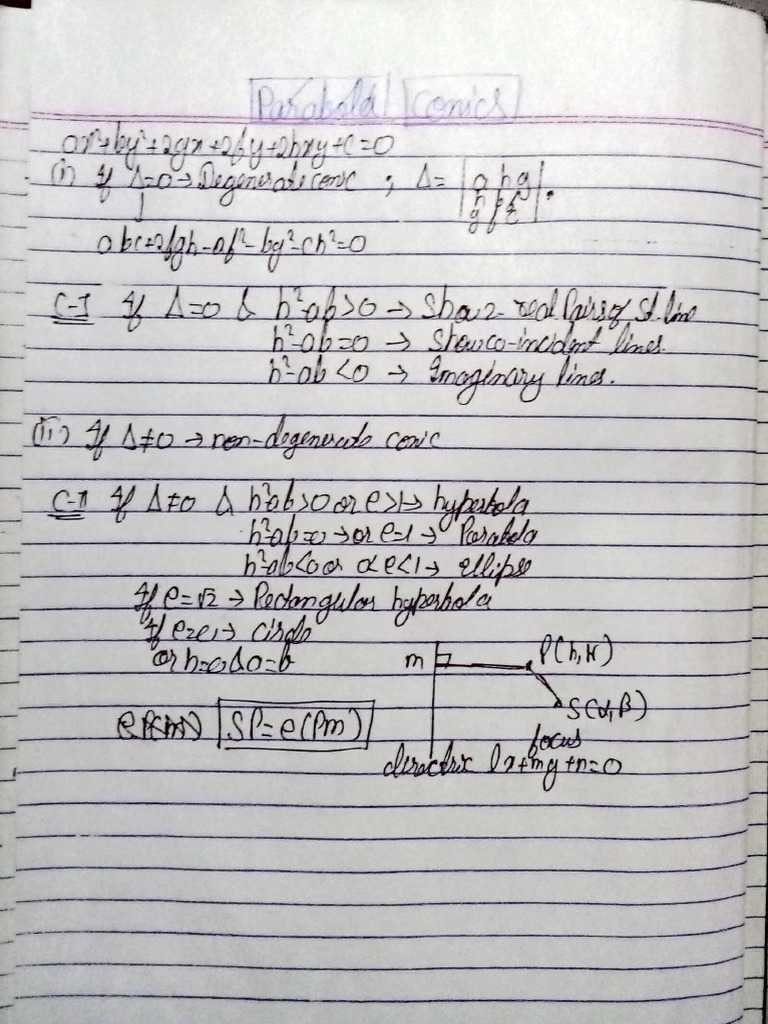 Parabola Conics
ax²+by²+2gx+2fy+2hxy+c=0
(i) If Δ=0→Degenerate conic ; Δ= |a h g|.
h b f
g f c
↓
abc+2fgh-af²-bg²-ch²=0
C-I If Δ=0 & h²-ab>0 → Show 2- real Pairs of St. line
h²-ab=0 → Show co-incident lines.
h²-ab<0 → Imaginary lines.
(ii) If Δ≠0 → non-degenerate conic
C-II If Δ≠0 & h²ab>0 or e>1→ hyperbola
h²-ab=0 → or e=1→ Parabola
h²-ab<0 or e<1→ ellipse
If e=√2 → Rectangular hyperbola
If → circle
or h=0 & a=b
m P(h,k)
S(α,β)
SP=e(Pm)
focus
directrix lx+my+n=0